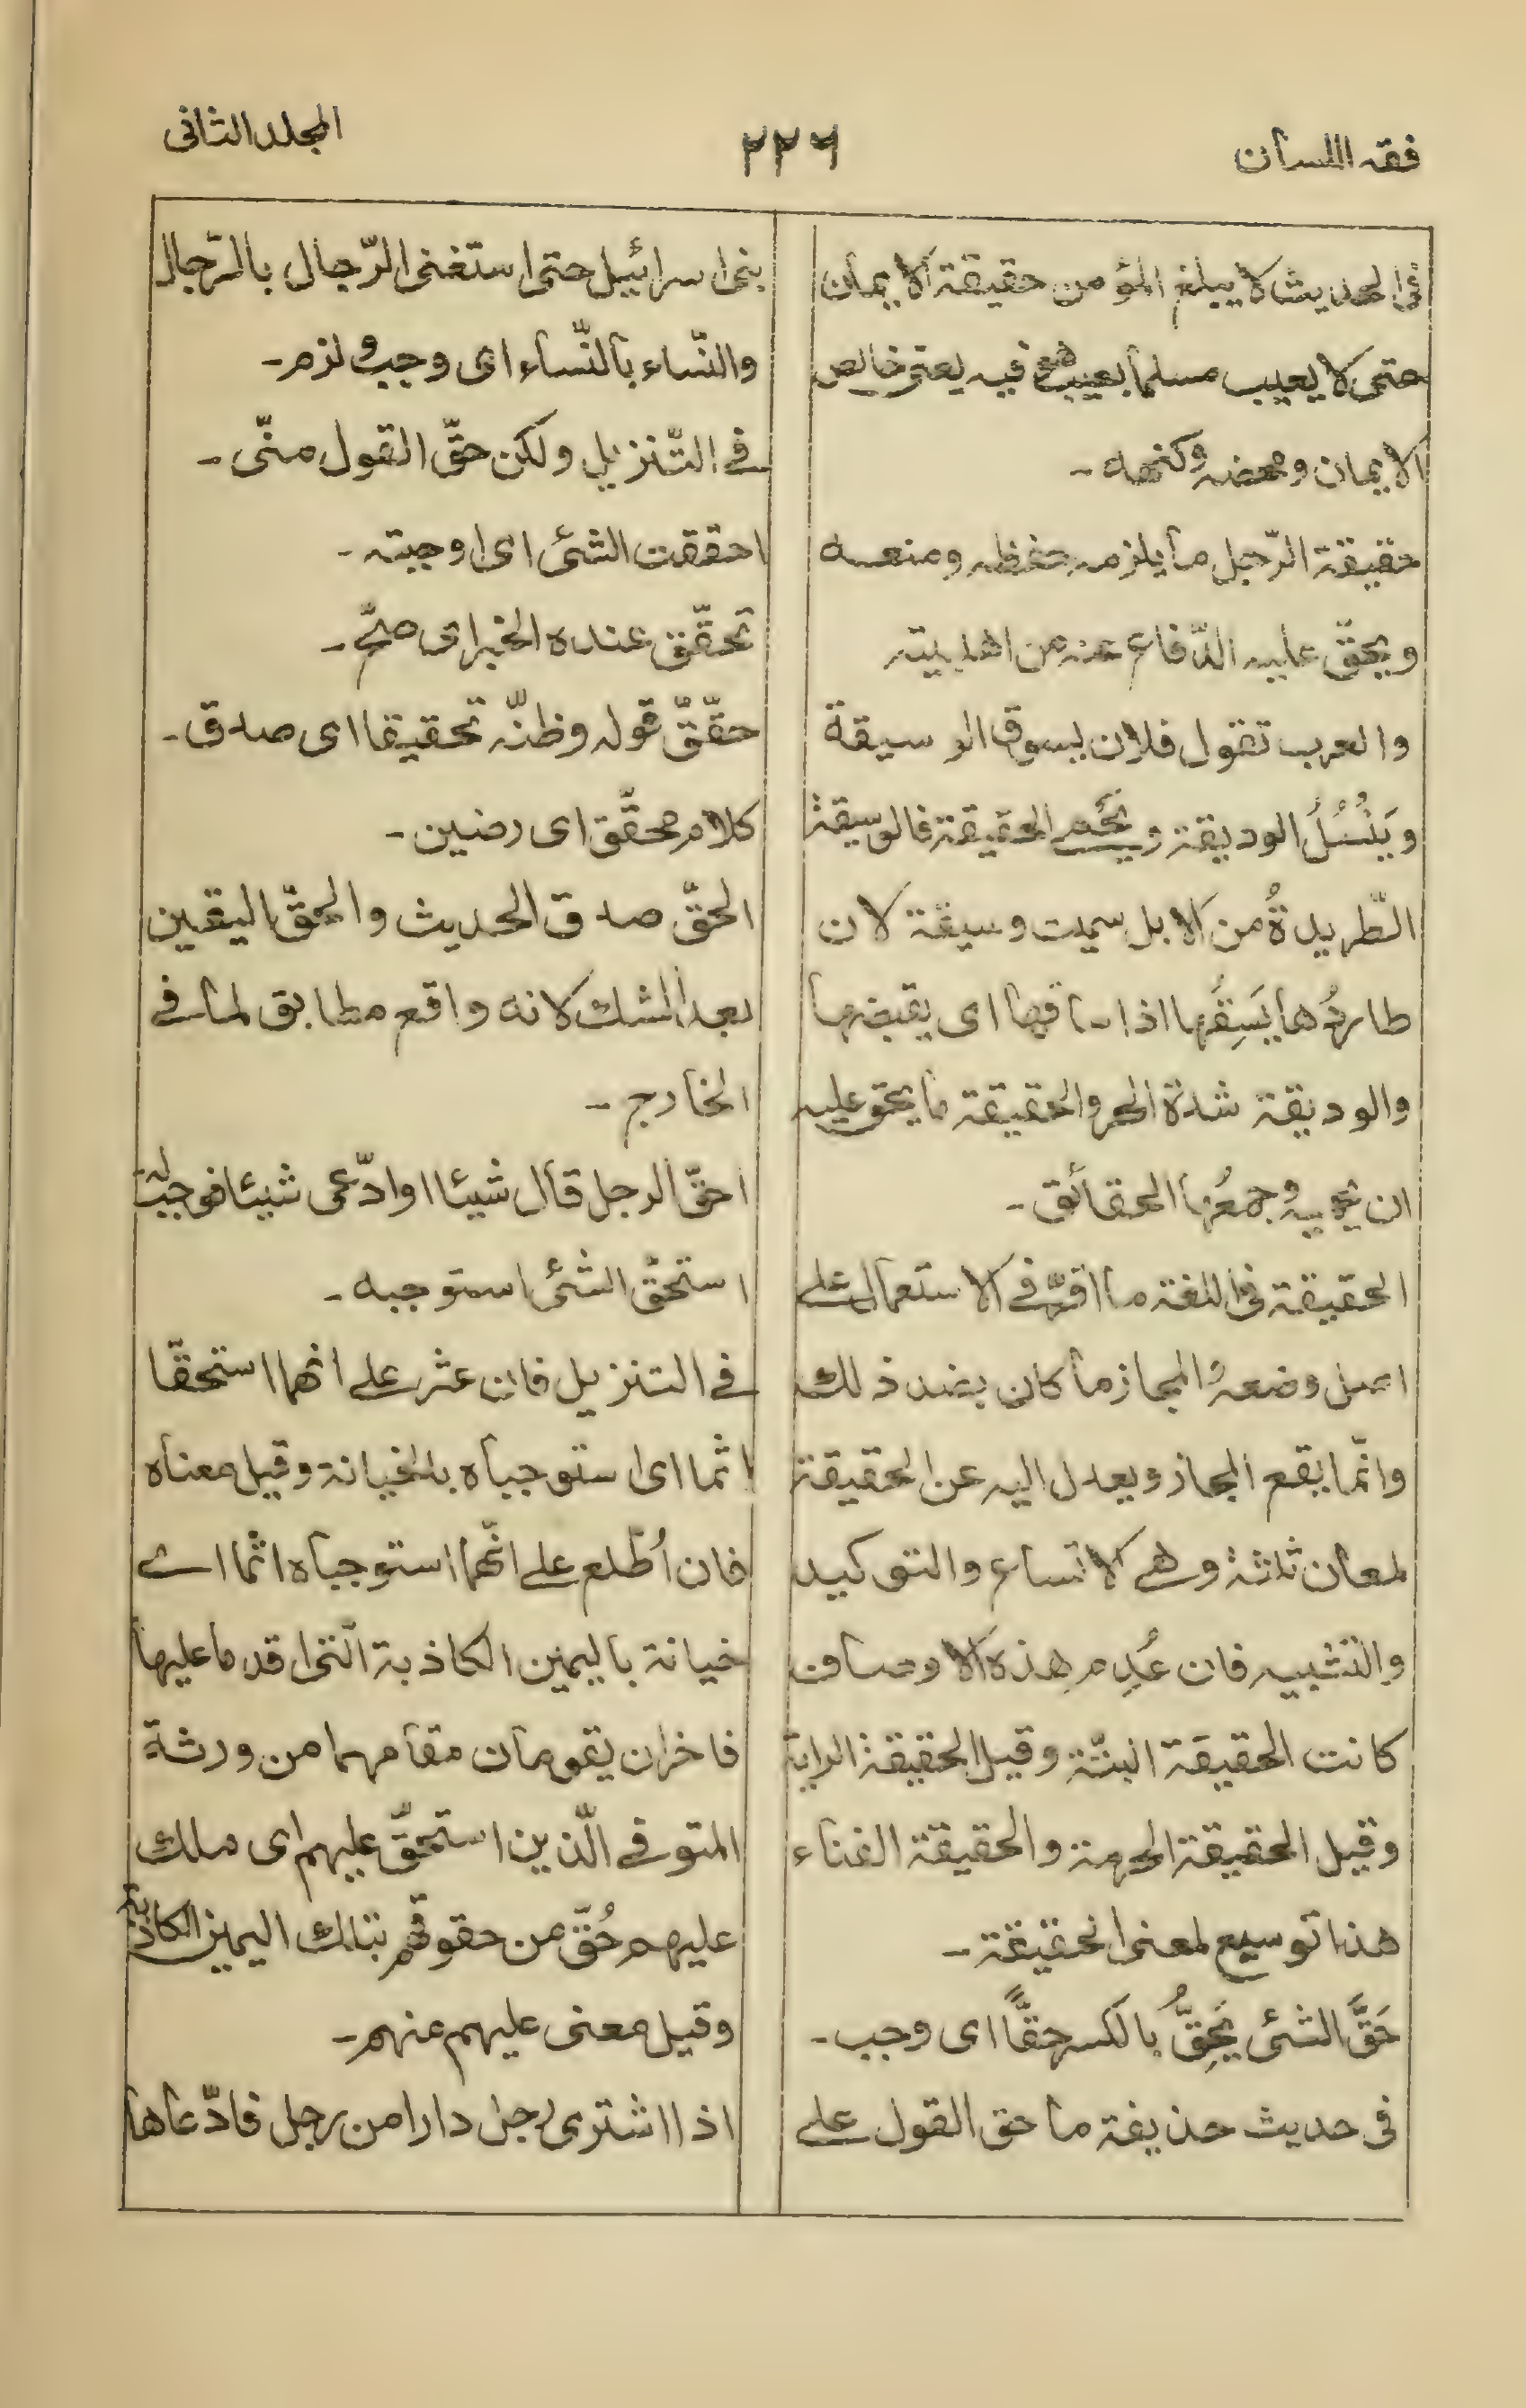 فقه اللسان
٢٢٦
المجلد الثانى
فى الحديث لا يبلغ المؤمن حقيقة الايمان
حتى لا يعيب مسلما بعيب هو فيه يعنى خالص
الايمان ومحضه وكنهه -
حقيقة الرّجل ما يلزمه حفظه ومنعه
ويحقّ عليه الدّفاع عنه من اهل بيته
والعرب تقول فلان يسوق الوسيقة
ويَنْسُلُ الوديقة ويَحْمى الحقيقة فالوسيقة
الطّريدةُ من الابل سميت وسيقة لان
طاردُها يَسِقُها اذا ساقها اى يقبضها
والوديقة شدة الحر والحقيقة ما يحق عليه
ان يحميه وجمعُها الحقائق -
الحقيقة فى اللغة ما اقرّ فى الاستعمال على
اصل وضعه والمجاز ما كان بضد ذلك
وانّما يقع المجاز ويعدل اليه عن الحقيقة
لمعان ثلثة وهى الاتساع والتوكيد
والتشبيه فان عُدِم هذه الاوصاف
كانت الحقيقة البتّة وقيل الحقيقة الراية
وقيل الحقيقة الحرمة والحقيقة الفناء
هذا توسيع لمعنى الحقيقة -
حَقَّ الشئ يَحِقُّ بالكسر حقًّا اى وجب -
فى حديث حذيفة ما حق القول على
بنى اسرائيل حتى استغنى الرّجال بالرّجال
والنّساء بالنّساء اى وجب ولزم -
فى التّنزيل ولكن حقّ القول منّى -
احققت الشئ اى اوجبته -
تحقّق عنده الخبر اى صحّ -
حقّقّ قوله وظنّه تحقيقا اى صدق -
كلام محقّق اى رصين -
الحقّ صدق الحديث والحقّ اليقين
بعد الشك لانه واقع مطابق لما فى
الخارج -
احقّ الرجل قال شيئا او ادّعى شيئا فوجب له
استحقّ الشئ استوجبه -
فى التنزيل فان عثر على انهما استحقّا
اثما اى استوجباه بالخيانة وقيل معناه
فان اُطّلع على انّهما استوجباه اثما اى
خيانة باليمين الكاذبة الّتى اقدما عليها
فاخران يقومان مقامهما من ورثة
المتوفى الّذين استحقّ عليهم اى ملك
عليهم حُقّ من حقوقهم بتلك اليمين الكاذبة
وقيل معنى عليهم منهم -
اذا اشترى رجل دارا من رجل فادّعاها